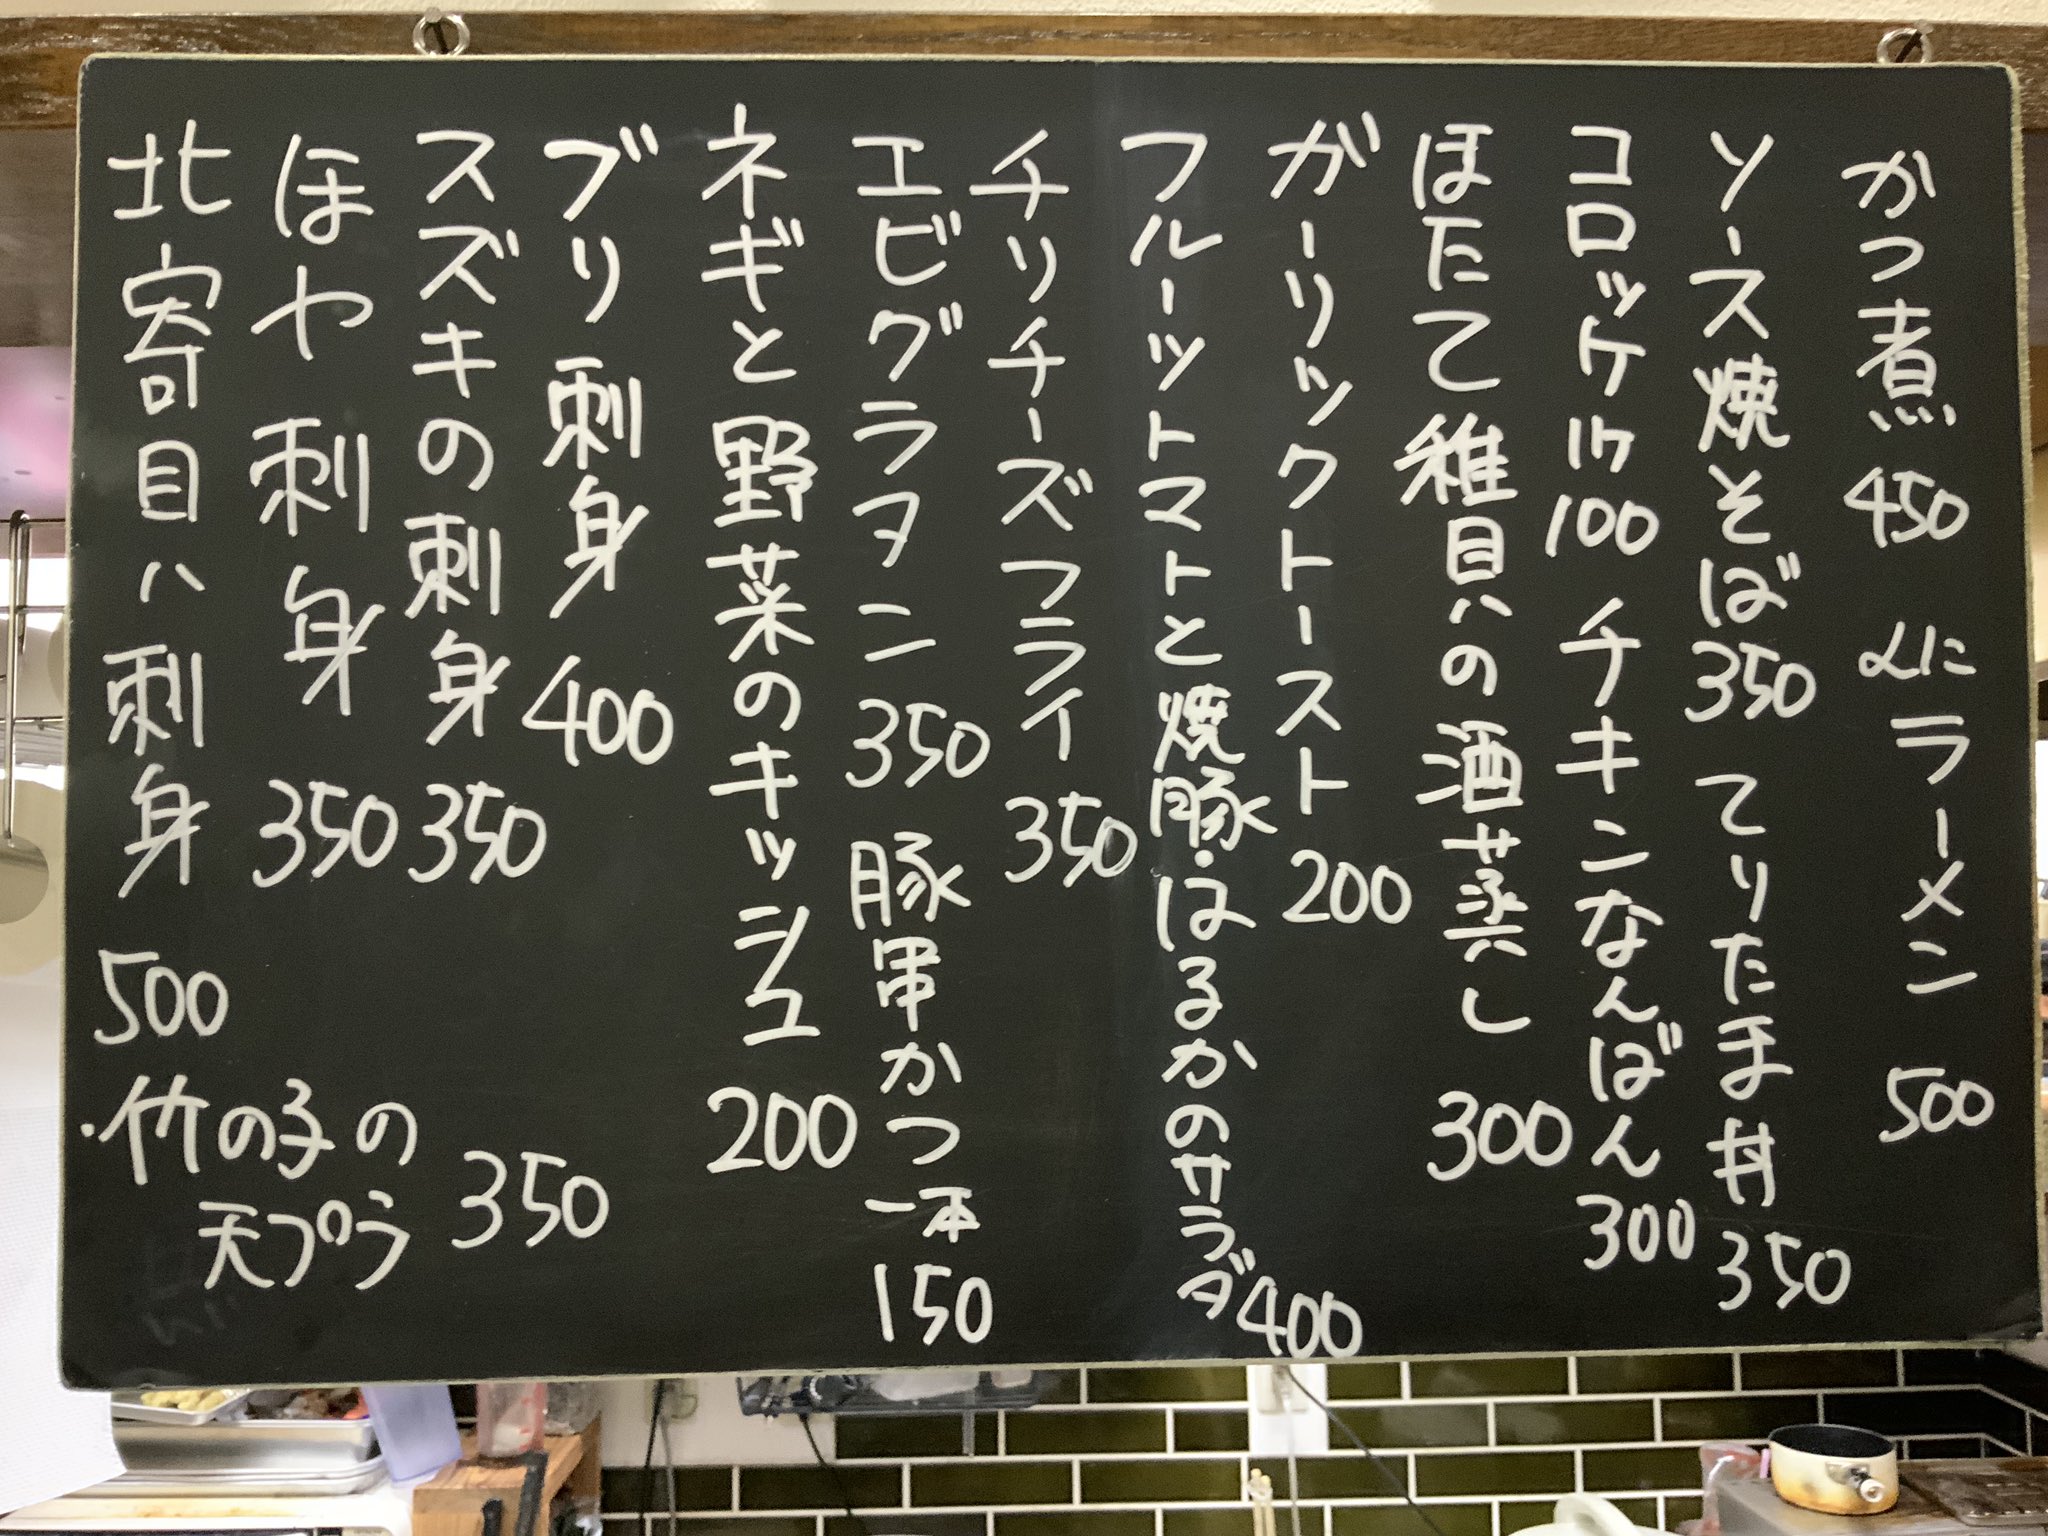 かつ煮 450 よにラーメン 500
ソース焼そば 350 てりたま丼 350
コロッケ 1ケ 100 チキンなんばん 300
ほたて稚貝の酒蒸し 300
ガーリックトースト 200
フルーツトマトと焼豚・はるかのサラダ 400
チリチーズフライ 350
エビグラタン 350 豚串かつ一本 150
ネギと野菜のキッシュ 200
ブリ刺身 400
スズキの刺身 350
ほや刺身 350
北寄貝刺身 500
・竹の子の
天プラ 350